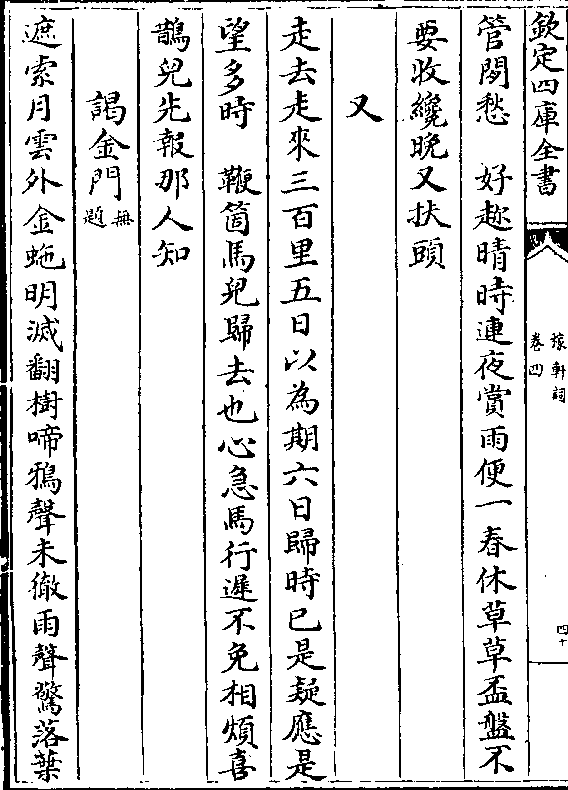 欽定四庫全書
稼軒詞
卷四
四十
管閒愁　好趂晴時連夜賞雨便一春休草草盃盤不
要收纔晚又扶頭
又
走去走來三百里五日以為期六日歸時已是疑應是
望多時　鞭箇馬兒歸去也心急馬行遲不免相煩喜
鵲兒先報那人知
謁金門無題
遮索月雲外金虵明滅翻樹啼鴉聲未徹雨聲驚落葉